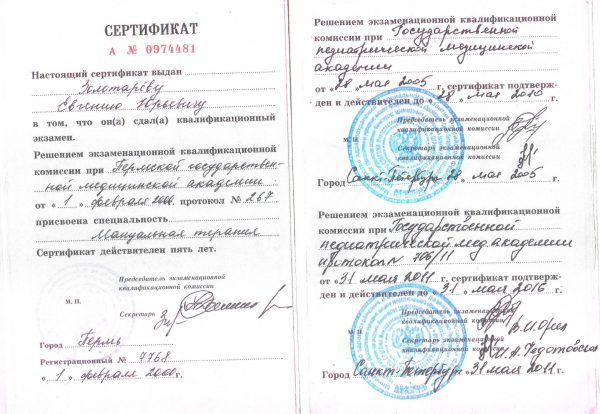 СЕРТИФИКАТ
А № 0974481
Настоящий сертификат выдан
Золотарёву
Евгению Юрьевичу
в том, что он(а) сдал(а) квалификационный
экзамен.
Решением экзаменационной квалификационной
комиссии при Пермской государствен-
ной медицинской академии
от « 1 » февраля 2000. протокол № 267
присвоена специальность
Мануальная терапия
Сертификат действителен пять лет.
Председатель экзаменационной
квалификационной комиссии
М. П.
Секретарь
Город Пермь
Регистрационный № 7768
« 1 » февраля 2000 г.
Решением экзаменационной квалификационной
комиссии при Государственной
педиатрической медицинской
академии
от «28» мая 2005 г. сертификат подтверж-
ден и действителен до «28» мая 2010
Председатель экзаменационной
квалификационной комиссии
М. П.
Секретарь экзаменационной
квалификационной комиссии
Город Санкт-Петербург 28 мая 2005
Решением экзаменационной квалификационной
комиссии при Государственной
педиатрической мед. академии
протокол 706/11
от «31» мая 2011 г. сертификат подтверж-
ден и действителен до «31» мая 2016
Председатель экзаменационной
квалификационной комиссии
М. П.
Секретарь экзаменационной
квалификационной комиссии
Город Санкт-Петербург «31» мая 2011